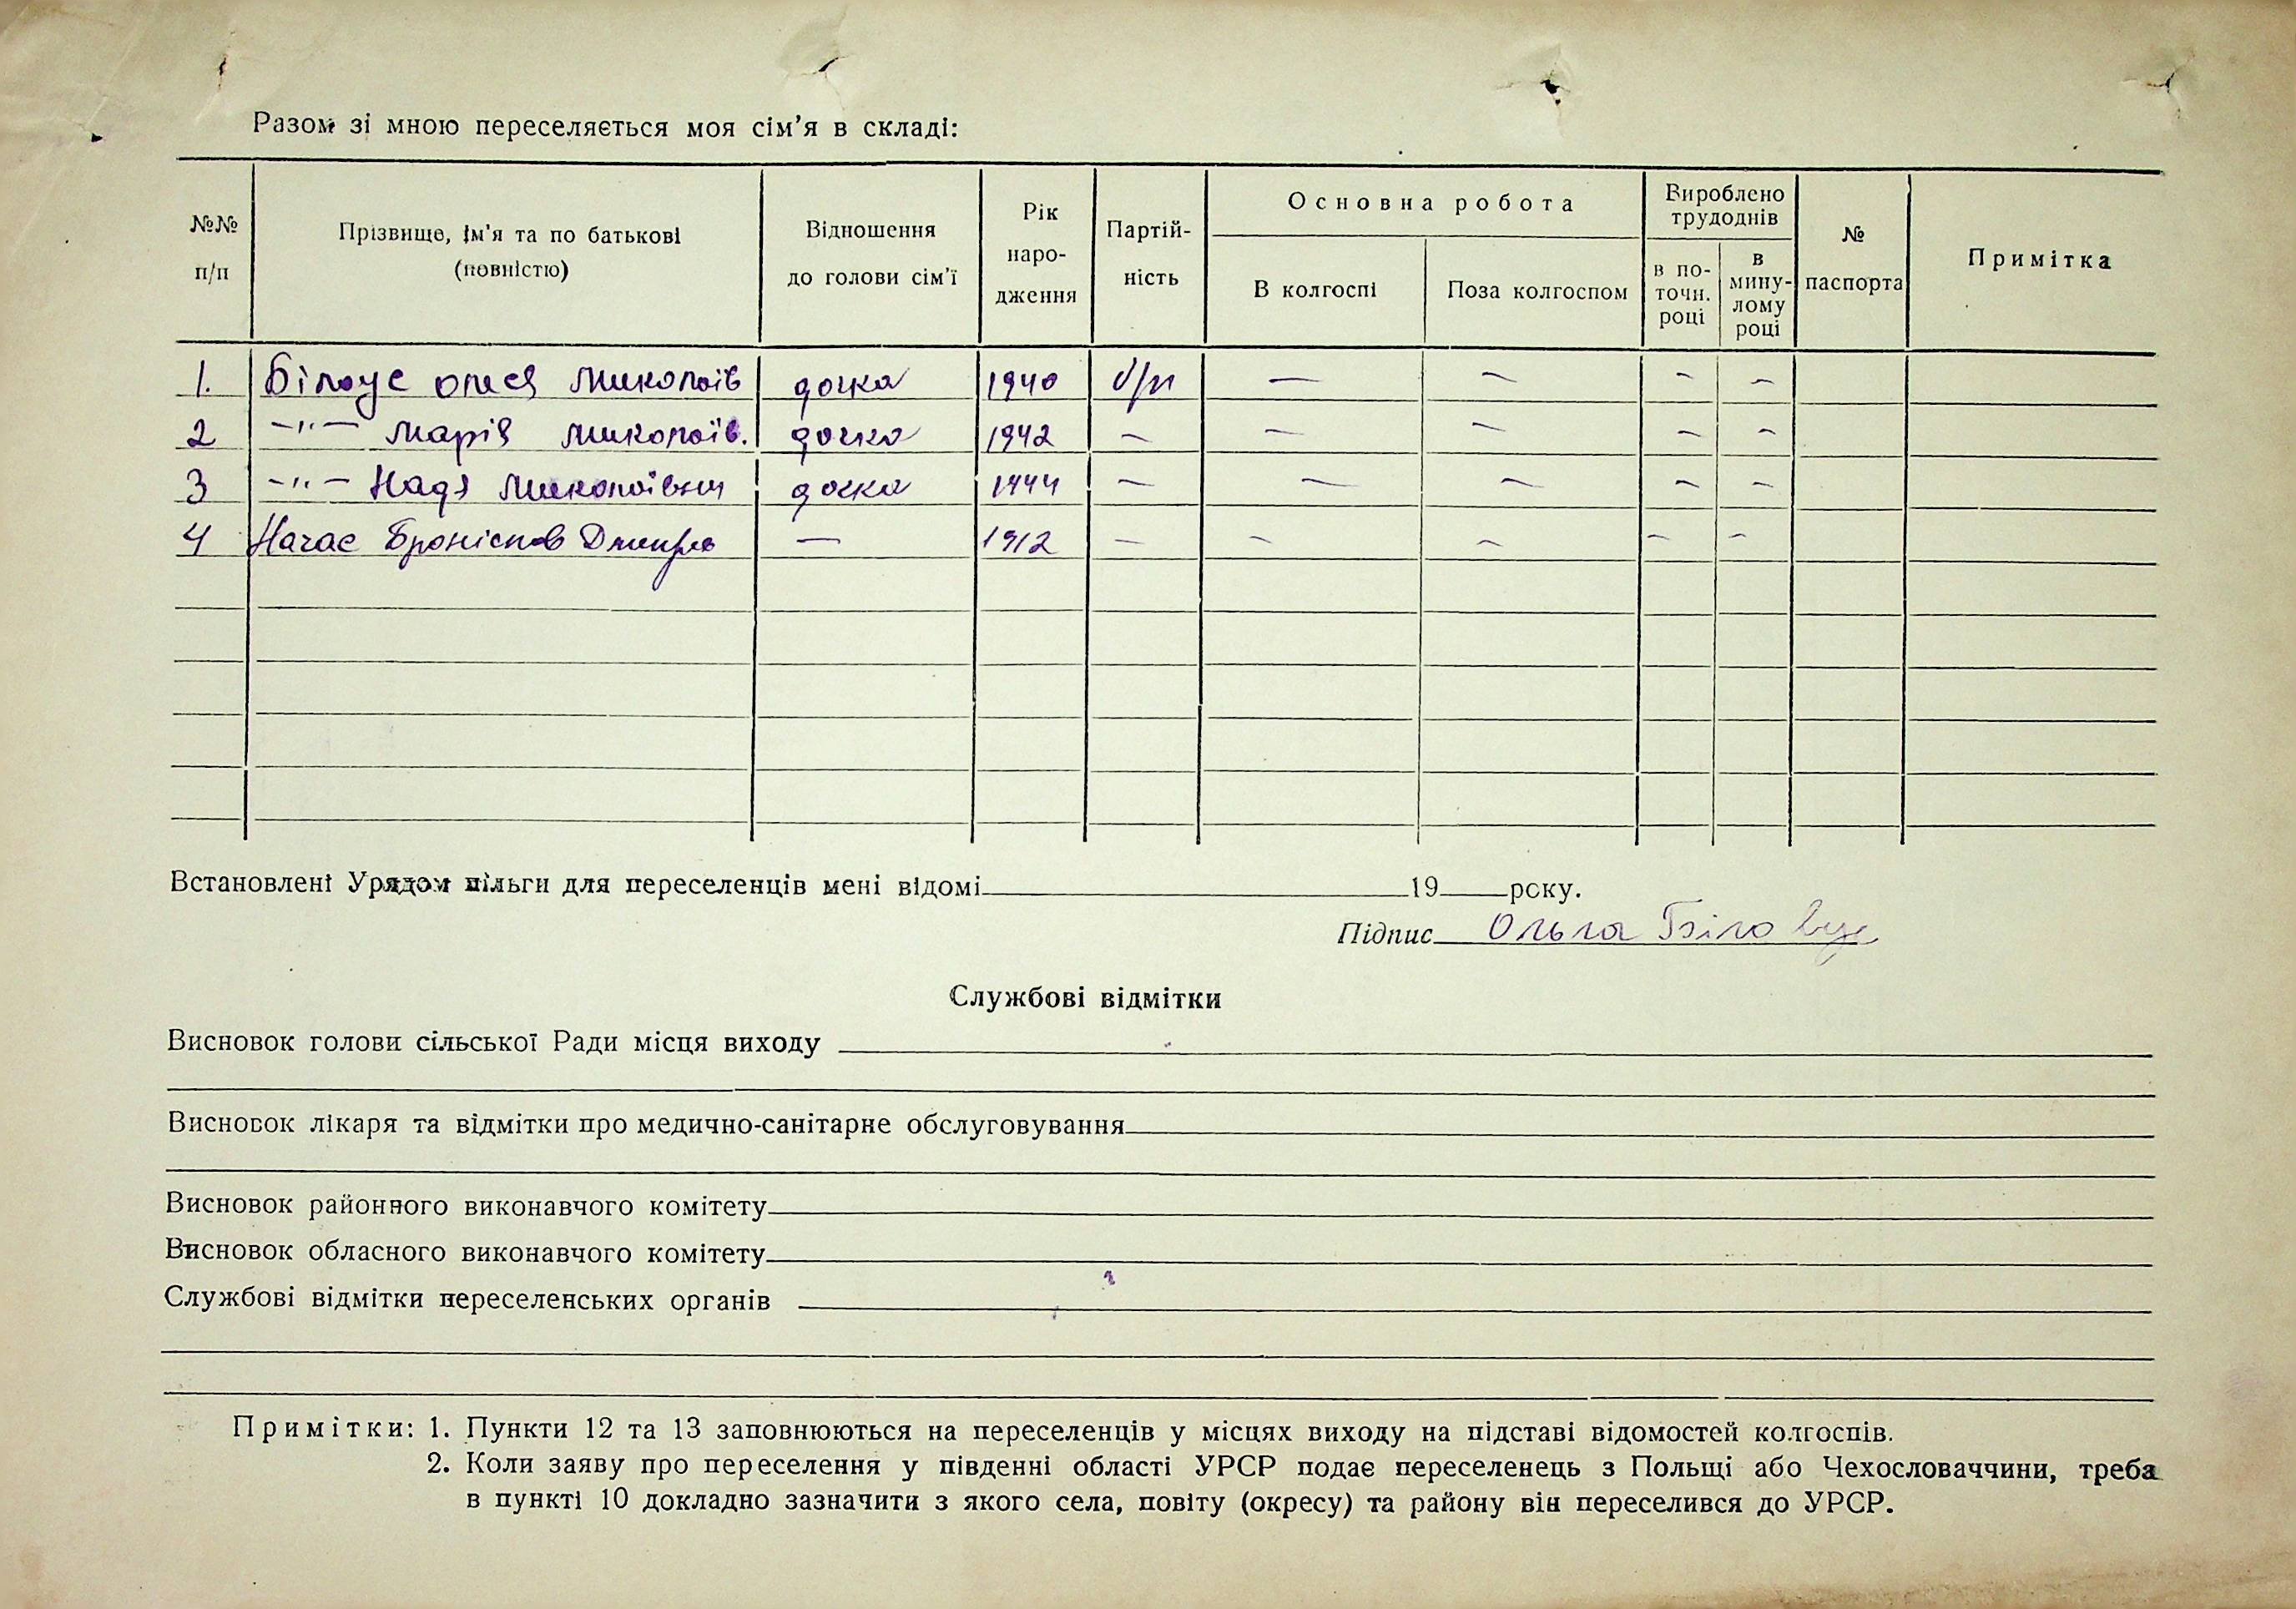 Разом зі мною переселяється моя сім'я в складі:
№№ п/п
Прізвище, ім'я та по батькові (повністю)
Відношення до голови сім'ї
Рік народження
Партійність
Основна робота
В колгоспі
Поза колгоспом
Вироблено трудоднів
в поточн. році
в минулому році
№ паспорта
Примітка
1. Білоус Олеся Миколаїв дочка 1940 б/п — — — —
2 —"— Марія Миколаїв. дочка 1942 — — — — —
3 —"— Надя Миколаївни дочка 1944 — — — — —
4 Броніслав Дмитро — 1912 — — — — —
Встановлені Урядом пільги для переселенців мені відомі 19 року.
Підпис Ольга Біло
Службові відмітки
Висновок голови сільської Ради місця виходу
Висновок лікаря та відмітки про медично-санітарне обслуговування
Висновок районного виконавчого комітету
Висновок обласного виконавчого комітету
Службові відмітки переселенських органів
Примітки: 1. Пункти 12 та 13 заповнюються на переселенців у місцях виходу на підставі відомостей колгоспів.
2. Коли заяву про переселення у південні області УРСР подає переселенець з Польщі або Чехословаччини, треба
в пункті 10 докладно зазначити з якого села, повіту (окресу) та району він переселився до УРСР.